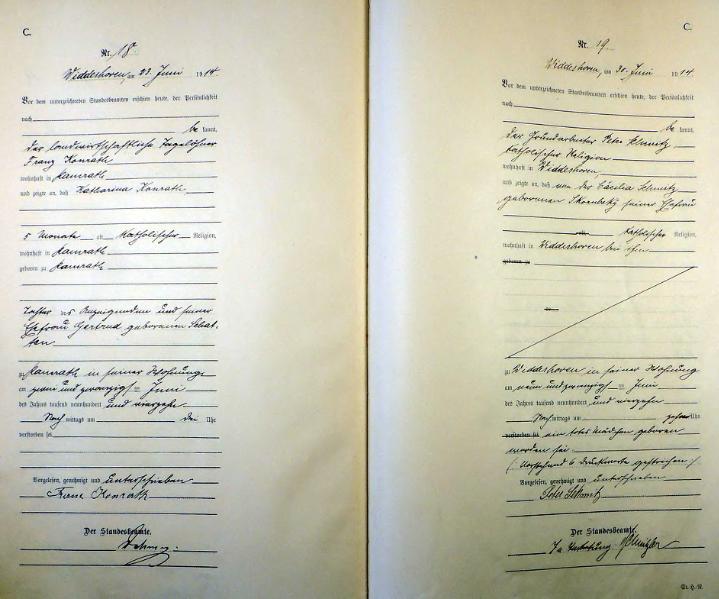 C.
Nr. 18.
Widdeshoven, am 23. Juni 1914.
Vor dem unterzeichneten Standesbeamten erschien heute, der Persönlichkeit
nach
be kannt,
der landwirtschaftliche Tagelöhner
Franz Konrath
wohnhaft in Ramrath
und zeigte an, daß Katharina Konrath
5 Monate alt Katholischer Religion,
wohnhaft in Ramrath
geboren zu Ramrath
Tochter des Anzeigenden und seiner
Ehefrau Gertrud geborenen
zu Ramrath in seiner Wohnung
am zwei und zwanzigsten Juni
des Jahres tausend neunhundert und vierzehn
Nach mittags um drei Uhr
verstorben sei
Vorgelesen, genehmigt und unterschrieben
Franz Konrath
Der Standesbeamte.
C.
Nr. 19.
Widdeshoven, am 30. Juni 1914.
Vor dem unterzeichneten Standesbeamten erschien heute, der Persönlichkeit
nach
be kannt,
der Peter Schmitz
katholischer Religion
wohnhaft in Widdeshoven
und zeigte an, daß von der Cäcilia Schmitz
geborenen seiner Ehefrau
alt Katholischer Religion,
wohnhaft in Widdeshoven bei ihm
geboren zu
zu Widdeshoven in seiner Wohnung
am neun und zwanzigsten Juni
des Jahres tausend neunhundert und vierzehn
Nach mittags um Uhr
verstorben sei ein totes Mädchen geboren
worden sei.
(Vorstehend 6 Druckworte gestrichen)
Vorgelesen, genehmigt und unterschrieben
Peter Schmitz
Der Standesbeamte.
In Vertretung